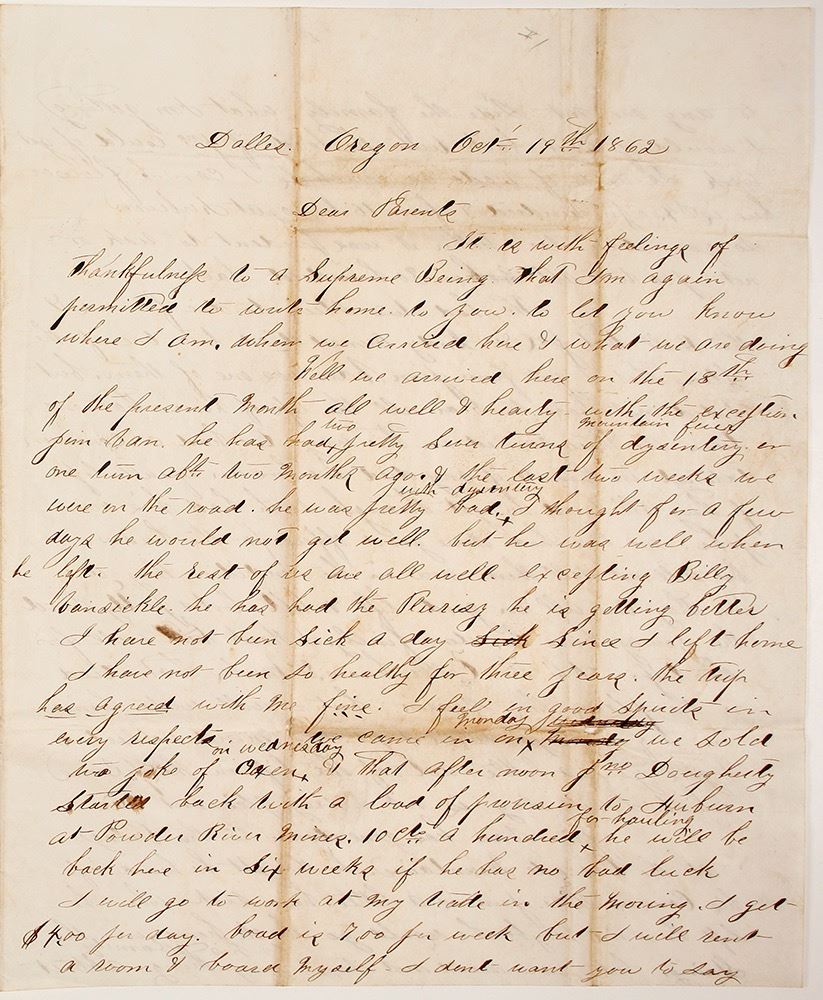 Dalles. Oregon Oct. 19th 1862
Dear Parents
It is with feelings of
thankfulness to a Supreme Being. that I'm again
permitted to write home to you. to let you know
where I am, when we arrived here & what we are doing
Well we arrived here on the 18th
of the present Month all well & hearty with the exception
two mountain fever
Jim Van. he has had pretty Sever turns of dysentery. or
one turn abt. two Months ago. & the last two weeks we
with dysentery
were on the road. he was pretty bad. I thought for a few
days he would not get well. but he was well when
he left. the rest of us are all well. excepting Billy
Vansickle. he has had the Plurisy he is getting better
I have not been Sick a day Sick Since I left home
I have not been so healthy for three years. the trip
has agreed with me fine. I feel in good Spirits in
Monday
every respects we came in on we sold
on wednesday
two yoke of Oxen, & that after noon Jno Dougherty
Started back with a load of provision to Auburn
for hauling
at Powder River Mines. 10 cts. a hundred he will be
back here in Six weeks if he has no bad luck
I will go to work at my trade in the Moring. I get
$4.00 per day. boad is 7.00 per week but I will rent
a room & board Myself. I dont want you to Say